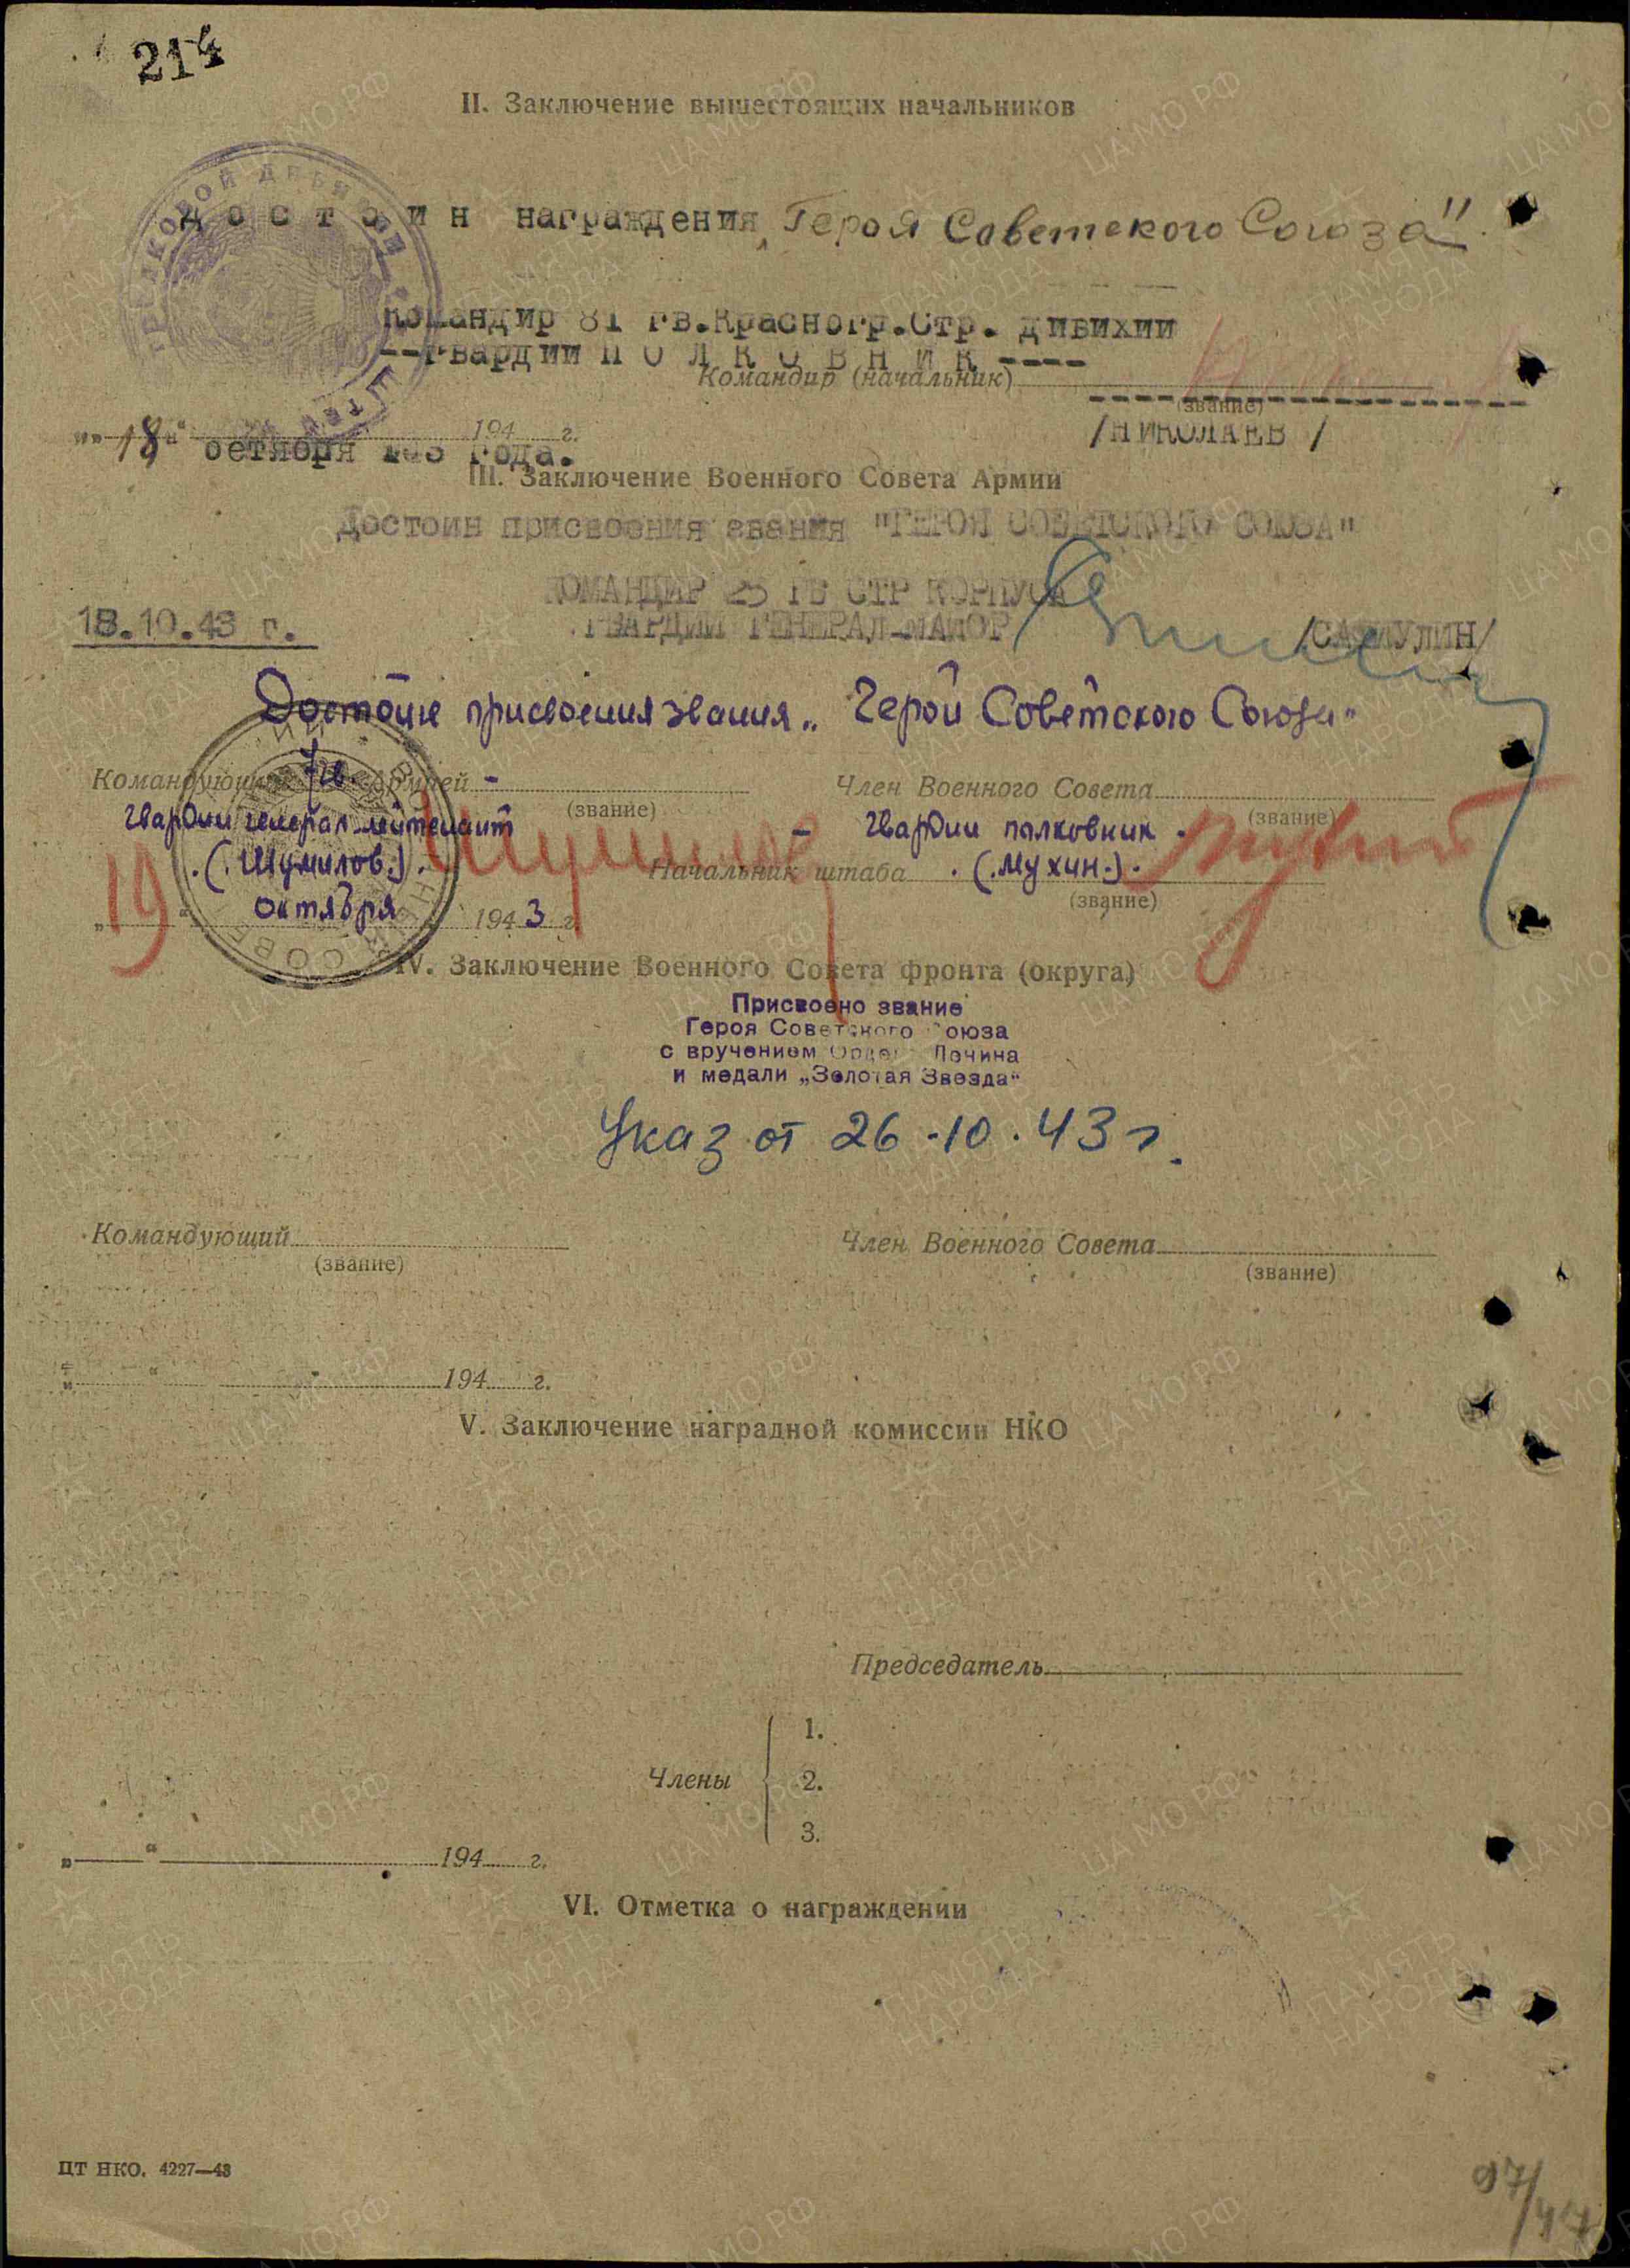 214
II. Заключение вышестоящих начальников
д о с т о и н награждения „Героя Советского Союза"
Командир 81 гв.Красногр.Стр. дивизии
--гвардии П О Л К О В Н И К ----
Командир (начальник)
(звание)
/НИКОЛАЕВ /
"18" 194 г.
октября года.
III. Заключение Военного Совета Армии
Достоин присвоения звания "ГЕРОЯ СОВЕТСКОГО СОЮЗА"
КОМАНДИР 25 ГВ СТР КОРПУСА
18.10.43 г.
ГВАРДИИ ГЕНЕРАЛ-МАЙОР /САФИУЛИН/
Достоин присвоения звания „Герой Советского Союза"
Командующий 7 гв. армией - Член Военного Совета
(звание) (звание)
гвардии генерал-лейтенант - гвардии полковник -
(Шумилов.) Начальник штаба (Мухин.)
(звание)
„19" октября 1943 г.
IV. Заключение Военного Совета фронта (округа)
Присвоено звание
Героя Советского Союза
с вручением Ордена Ленина
и медали „Золотая Звезда"
Указ от 26.10.43 г.
Командующий Член Военного Совета
(звание) (звание)
„ " 194 г.
V. Заключение наградной комиссии НКО
Председатель
1.
Члены 2.
3.
„ " 194 г.
VI. Отметка о награждении
ЦТ НКО. 4227—43
97/47